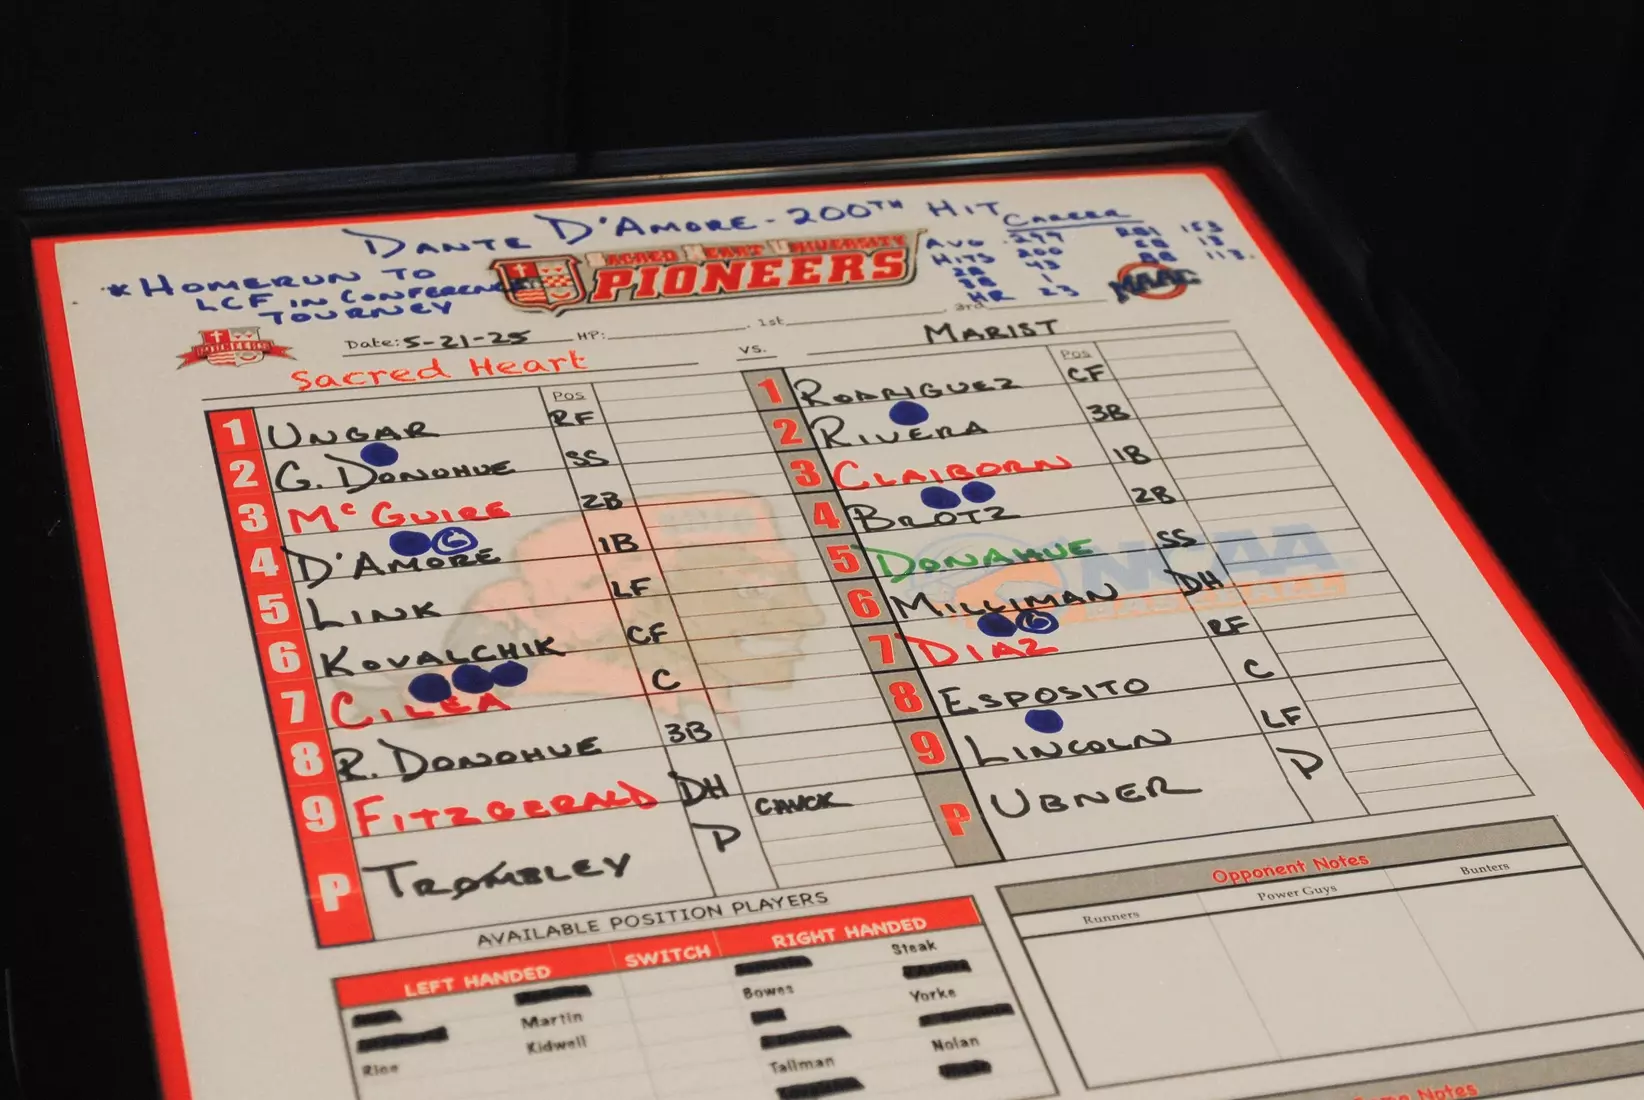 DANTE D'AMORE - 200TH HIT
* HOMERUN TO
LCF IN CONFERENCE
TOURNEY
SACRED HEART UNIVERSITY
PIONEERS
CAREER
AVG .299 RBI 153
HITS 200 SB 13
2B 43 BB 113
3B 1
HR 23
MAAC
PIONEERS
Date: 5-21-25 HP: 1st 3rd
Sacred Heart vs. MARIST
Pos
1 UNGAR RF
2 G. DONOHUE SS
3 McGUIRE 2B
4 D'AMORE 1B
5 LINK LF
6 KOVALCHIK CF
7 CILEA C
8 R. DONOHUE 3B
9 FITZGERALD DH CAUCK
P TROMBLEY P
Pos
1 RODRIGUEZ CF
2 RIVERA 3B
3 CLAIBORN 1B
4 BROTZ 2B
5 DONAHUE SS
6 MILLIMAN DH
7 DIAZ RF
8 ESPOSITO C
9 LINCOLN LF
P UBNER P
NCAA
BASEBALL
AVAILABLE POSITION PLAYERS
LEFT HANDED SWITCH RIGHT HANDED
Steak
Martin Bowes Yorke
Kidwell
Rice Tallman Nolan
Opponent Notes
Runners Power Guys Bunters
Game Notes